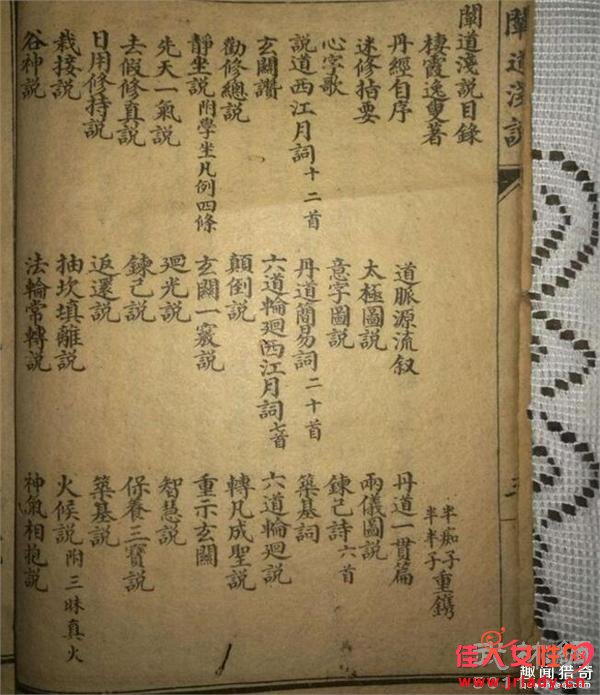 闡道淺説
闡道淺説目錄
棲霞逸叟著 半痴子 半半子 重鐫
丹經自序 道脈源流叙 丹道一貫篇
迷修指要 太極圖説 兩儀圖説
心字歌 意字圖説 鍊己詩六首
説道西江月詞十二首 丹道簡易詞二十首 築基詞
玄關讚 六道輪廻西江月詞七首 六道輪廻説
勸修總説 顛倒説 轉凡成聖説
靜坐説附學坐凡例四條 玄關一竅説 重示玄關
先天一氣説 廻光説 智慧説
去假修真説 鍊己説 保養三寶説
日用修持説 返還説 築基説
栽接説 抽坎填離説 火候説附三昧真火
谷神説 法輪常轉説 神氣相抱説
佳人女性网
趣闻猎奇